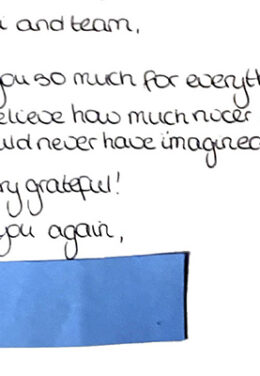 and team,
you so much for everyth
believe how much nicer
uld never have imagined
ry grateful!
you again,